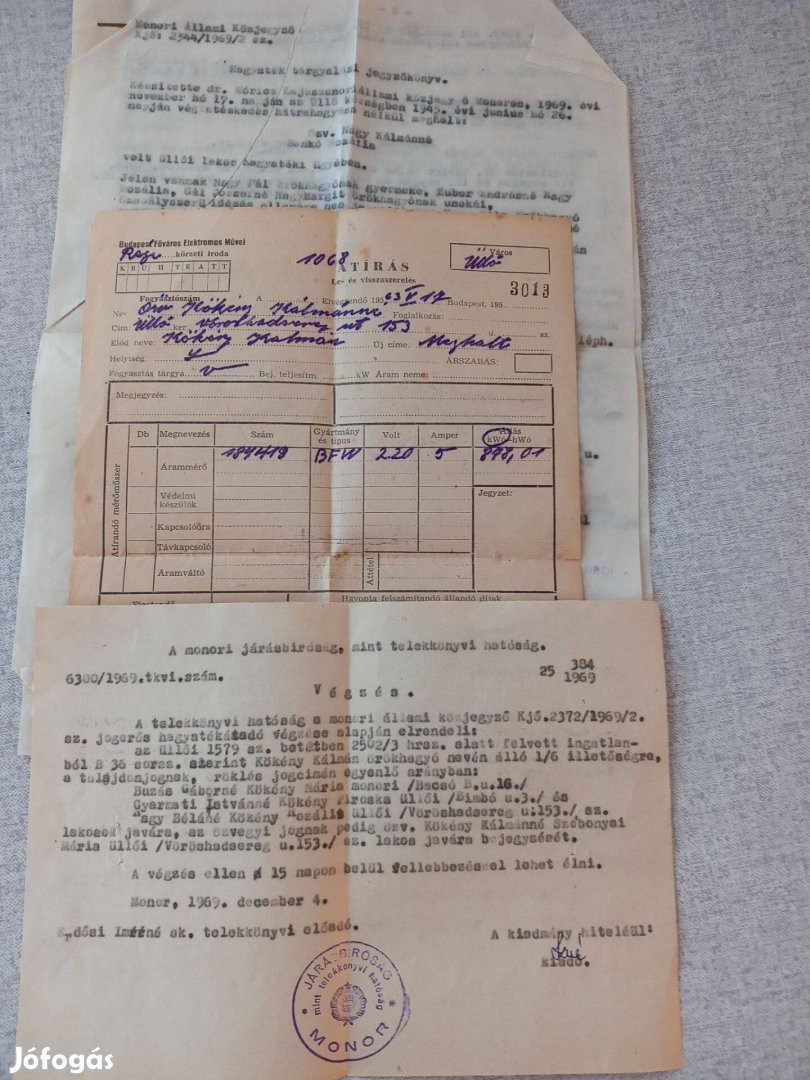 Monori Állami Közjegyző
Kjő: 2344/1969/2 sz.
Hagyaték tárgyalási jegyzőkönyv.
Készitette dr. Móricz Lajosmonoriállami közjegy ő Monoron, 1969. évi
november hó 17. napján az Üllő községben 1945. évi junius hó 26.
napján végintézkedés hátrahagyása nélkül meghalt:
Özv. Nagy Kálmánné
Benkó Rozália
volt üllői lakos hagyatéki ügyében.
Jelen vannak Nagy Pál örökhagyónak gyermeke, Zubor Andrásné Nagy
Rozália, Gál Józsefné NagyMargit örökhagyónak unokái,
Budapest Főváros Elektromos Művei
körzeti iroda
1068
Város
Üllő
K R U H T E A T T
ÁTÍRÁS
Le- és visszaszerelés
3013
Fogyasztószám A Elvégzendő 195 63 V 17 Budapest, 195
Név Özv Kökény Kálmánné Foglalkozás:
Cím Üllő ker. Vöröshadsereg út 153 u. sz.
Előd neve: Kökény Kálmán Új címe: Meghalt
Helyiség: ÁRSZABÁS:
Fogyasztás tárgya v Bej. teljesítm. kW Áram neme:
Megjegyzés:
Átírandó mérőműszer
Db Megnevezés Szám Gyártmány és típus Volt Amper Állás kWó-hWó
Árammérő 189419 BFW 220 5 878,01
Védelmi készülék
Jegyzet:
Kapcsolóóra
Távkapcsoló
Áramváltó
Áttétel
Havonta felszámítandó állandó díjak
léph.
u.
A monori járásbiróság, mint telekkönyvi hatóság.
6300/1969.tkvi.szám.
25 384
1969
V é g z é s .
A telekkönyvi hatóság a monori állami közjegyző Kjő.2372/1969/2.
sz. jogerős hagyatékátadó végzése alapján elrendeli:
az üllői 1579 sz. betétben 2502/3 hrsz. alatt felvett ingatlan-
ból B 36 sorsz. szerint Kökény Kálmán örökhagyó nevén álló 1/6 illetőségre,
a tulajdonjognak, öröklés jogcimén egyenlő arányban:
Buzás Gáborné Kökény Mária monori /Bacsó B.u.16./
Gyarmati Istvánné Kökény Piroska üllői /Bimbó u.3./ és
Nagy Béláné Kökény Rozália üllői /Vöröshadsereg u.153./ sz.
lakosok javára, az özvegyi jognak pedig özv. Kökény Kálmánné Szebenyai
Mária üllői /Vöröshadsereg u.153./ sz. lakos javára bejegyzését.
A végzés ellen 15 napon belül fellebbezéssel lehet élni.
Monor, 1969. december 4.
Erdősi Imréné sk. telekkönyvi előadó.
A kiadmány hiteléül:
kiadó.
* JÁRÁSBIRÓSÁG *
mint telekkönyvi hatóság
MONOR
Jófogás